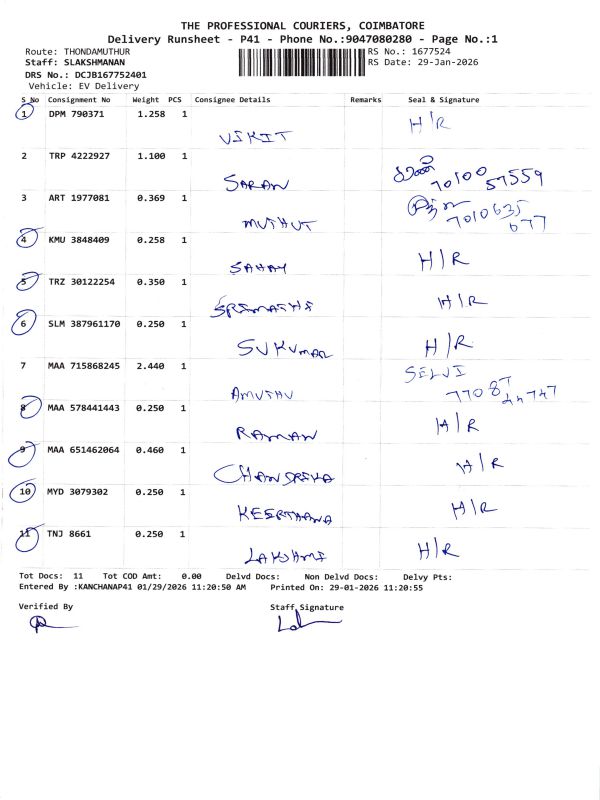 THE PROFESSIONAL COURIERS, COIMBATORE
Delivery Runsheet - P41 - Phone No.:9047080280 - Page No.:1
Route: THONDAMUTHUR RS No.: 1677524
Staff: SLAKSHMANAN RS Date: 29-Jan-2026
DRS No.: DCJB167752401
Vehicle: EV Delivery
S No Consignment No Weight PCS Consignee Details Remarks Seal & Signature
1 DPM 790371 1.258 1 H/R
VIKIT
2 TRP 4222927 1.100 1
SARAN 70100 57559
3 ART 1977081 0.369 1
MUTHUT 7010635 677
4 KMU 3848409 0.258 1 H/R
SAHAY
5 TRZ 30122254 0.350 1 H/R
SRIMATHI
6 SLM 387961170 0.250 1 H/R
SUKUMAR
7 MAA 715868245 2.440 1 SELVI
AMUTHU 77087 44747
8 MAA 578441443 0.250 1 H/R
RAMAN
9 MAA 651462064 0.460 1 H/R
CHANDRIKA
10 MYD 3079302 0.250 1 H/R
KEERTHANA
11 TNJ 8661 0.250 1 H/R
LAKSHMI
Tot Docs: 11 Tot COD Amt: 0.00 Delvd Docs: Non Delvd Docs: Delvy Pts:
Entered By :KANCHANAP41 01/29/2026 11:20:50 AM Printed On: 29-01-2026 11:20:55
Verified By Staff Signature